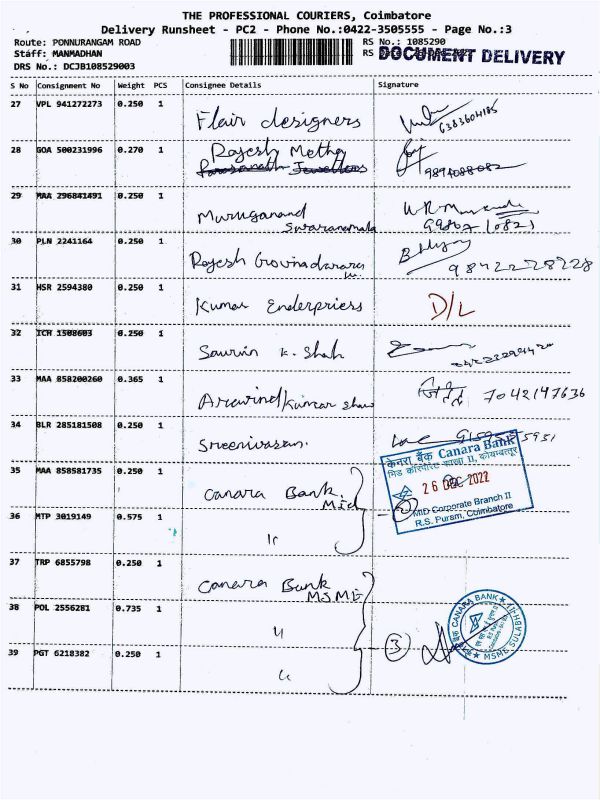 THE PROFESSIONAL COURIERS, Coimbatore
Delivery Runsheet - PC2 - Phone No.:0422-3505555 - Page No.:3
Route: PONNURANGAM ROAD
RS No.: 1085290
Staff: MANMADHAN
RS
DOCUMENT DELIVERY
DRS No.: DCJB108529003
S No Consignment No Weight PCS Consignee Details Signature
27 VPL 941272273 0.250 1 Flair designers 6383604185
28 GOA 500231996 0.270 1 Rajesh Metha
Parasanath Jewellers 9894088082
29 MAA 296841491 0.250 1 Muruganand
Swaranamala
30 PLN 2241164 0.250 1 Rajesh 9842228228
31 HSR 2594380 0.250 1 Kumar Enderpriers D/L
32 ICH 1508603 0.250 1 Saurin K. Shah
33 MAA 858200260 0.365 1 Arawind/Kumar Shaw 7042147636
34 BLR 285181508 0.250 1 Sreenivasan.
केनरा बैंक Canara Bank
मिड कॉर्पोरेट शाखा II, कोयम्बत्तूर
26 DEC 2022
MID Corporate Branch II
R.S. Puram, Coimbatore
35 MAA 858581735 0.250 1 Canara Bank.
Mid
36 MTP 3019149 0.575 1 "
37 TRP 6855798 0.250 1 Canara Bank
MSME
38 POL 2556281 0.735 1 "
3
CANARA BANK
MSME SULABH
39 PGT 6218382 0.250 1 "